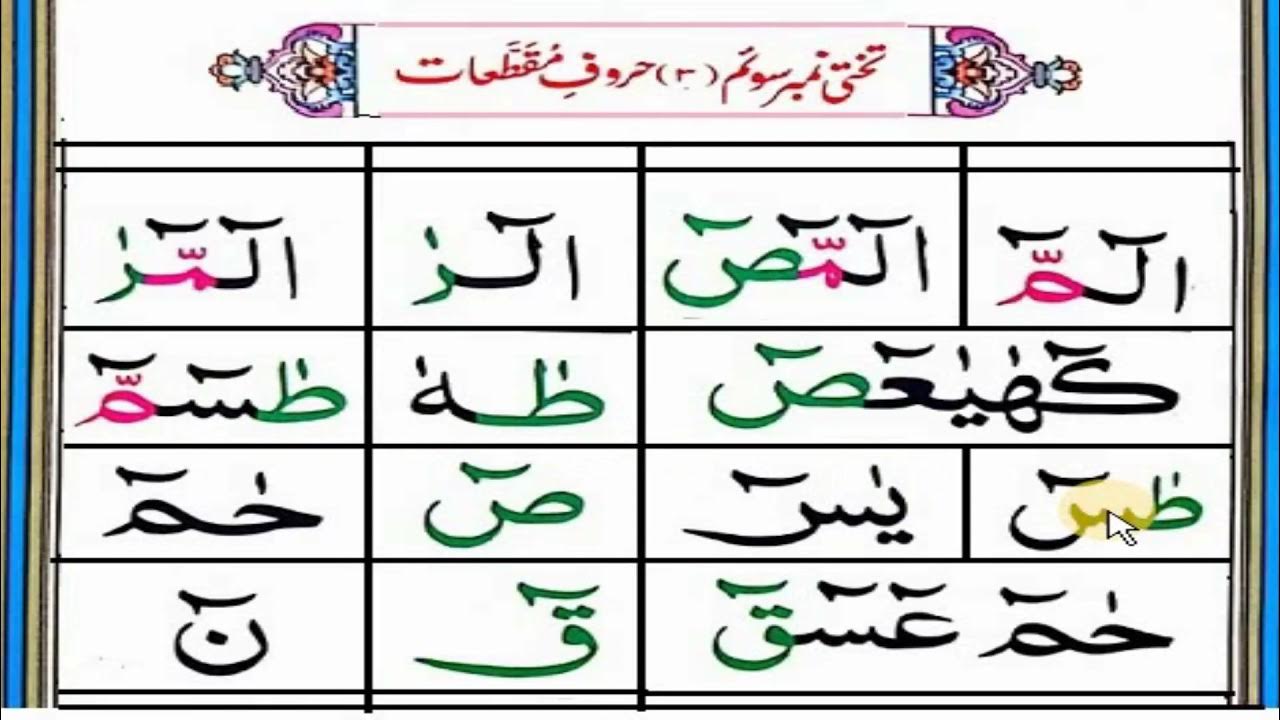 تختی نمبر سوئم (۳) حروفِ مُقَطَّعات
الٓمّٓ الٓمّٓصٓ الٓرٰ الٓمّٓرٰ
كٓهٰيٰعٓصٓ طٰهٰ طٰسٓمّٓ
طٰسٓ يٰسٓ صٓ حٰمٓ
حٰمٓ عٓسٓقٓ قٓ نٓ